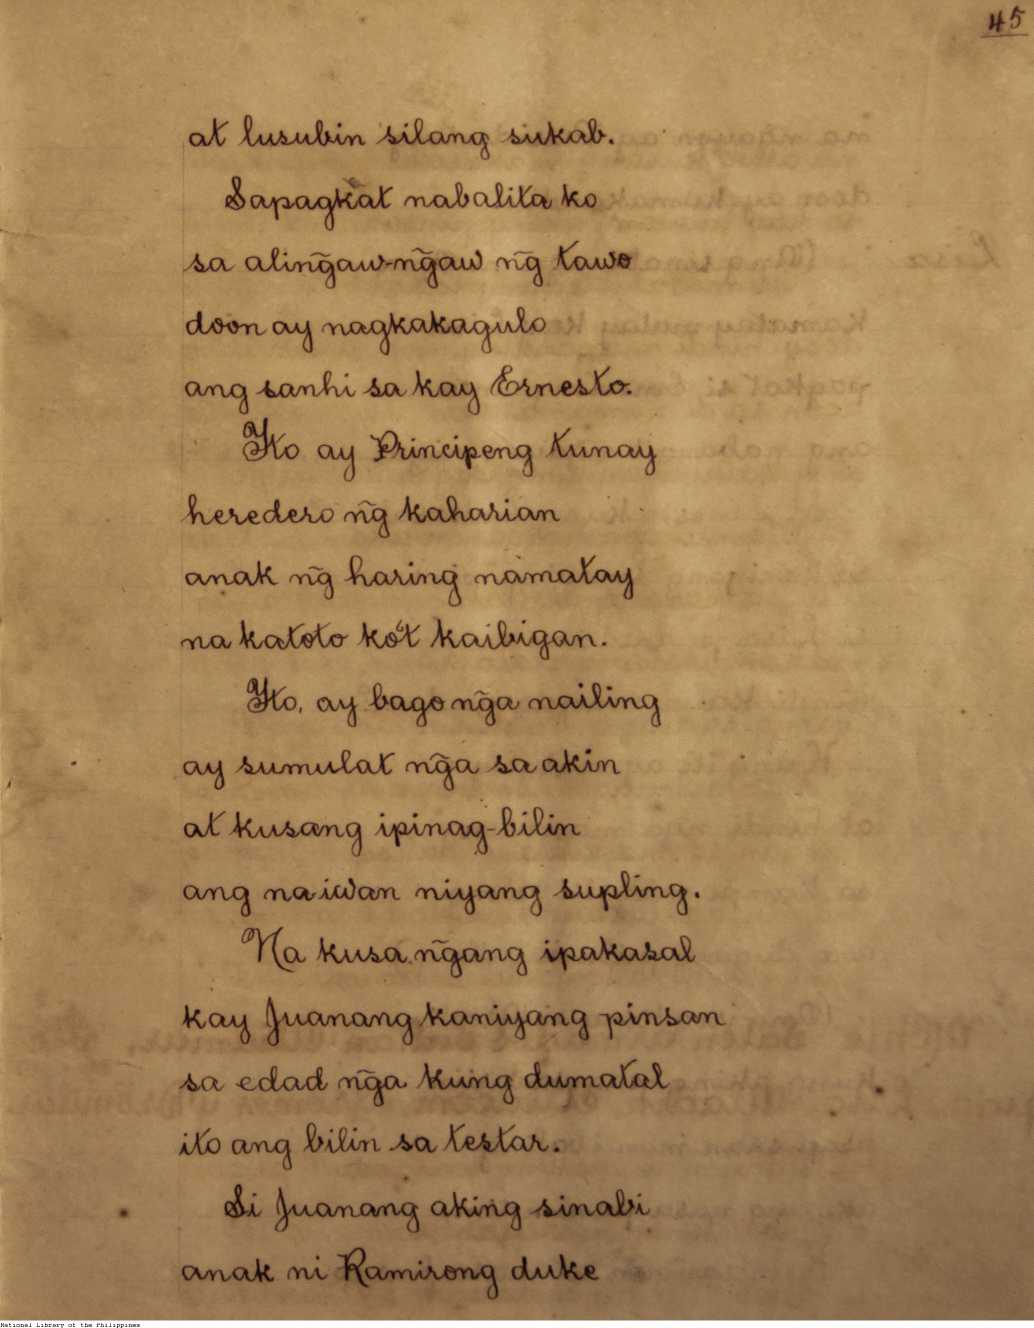 45
at lusubin silang sukab.
Sapagkat nabalita ko
sa aling̃aw-ng̃aw ng̃ tawo
doon ay nagkakagulo
ang sanhi sa kay Ernesto.
Ito ay Principeng tunay
heredero ng̃ kaharian
anak ng̃ haring namatay
na katoto ko't kaibigan.
Ito, ay bago ng̃a nailing
ay sumulat ng̃a sa akin
at kusang ipinag-bilin
ang naiwan niyang supling.
Na kusa ng̃ang ipakasal
kay Juanang kaniyang pinsan
sa edad ng̃a kung dumatal
ito ang bilin sa testar.
Si Juanang aking sinabi
anak ni Ramirong duke
National Library of the Philippines